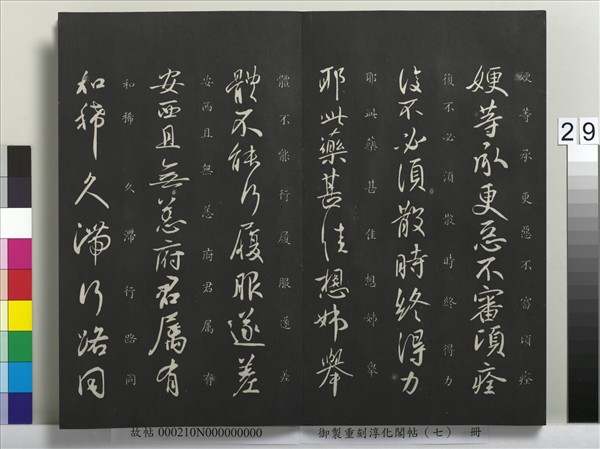 嫂等承更惡不審須痊
嫂等承更惡不審須痊
復不必須散時終得力
復不必須散時終得力
耶此藥甚佳想姊舉
耶此藥甚佳想姊舉
體不能行履服遂差
體不能行履服遂差
安西且無恙府君屬有
安西且無恙府君屬有
和稀久滯行路同
和稀久滯行路同
29
故帖 000210N000000000 御製重刻淳化閣帖（七） 冊